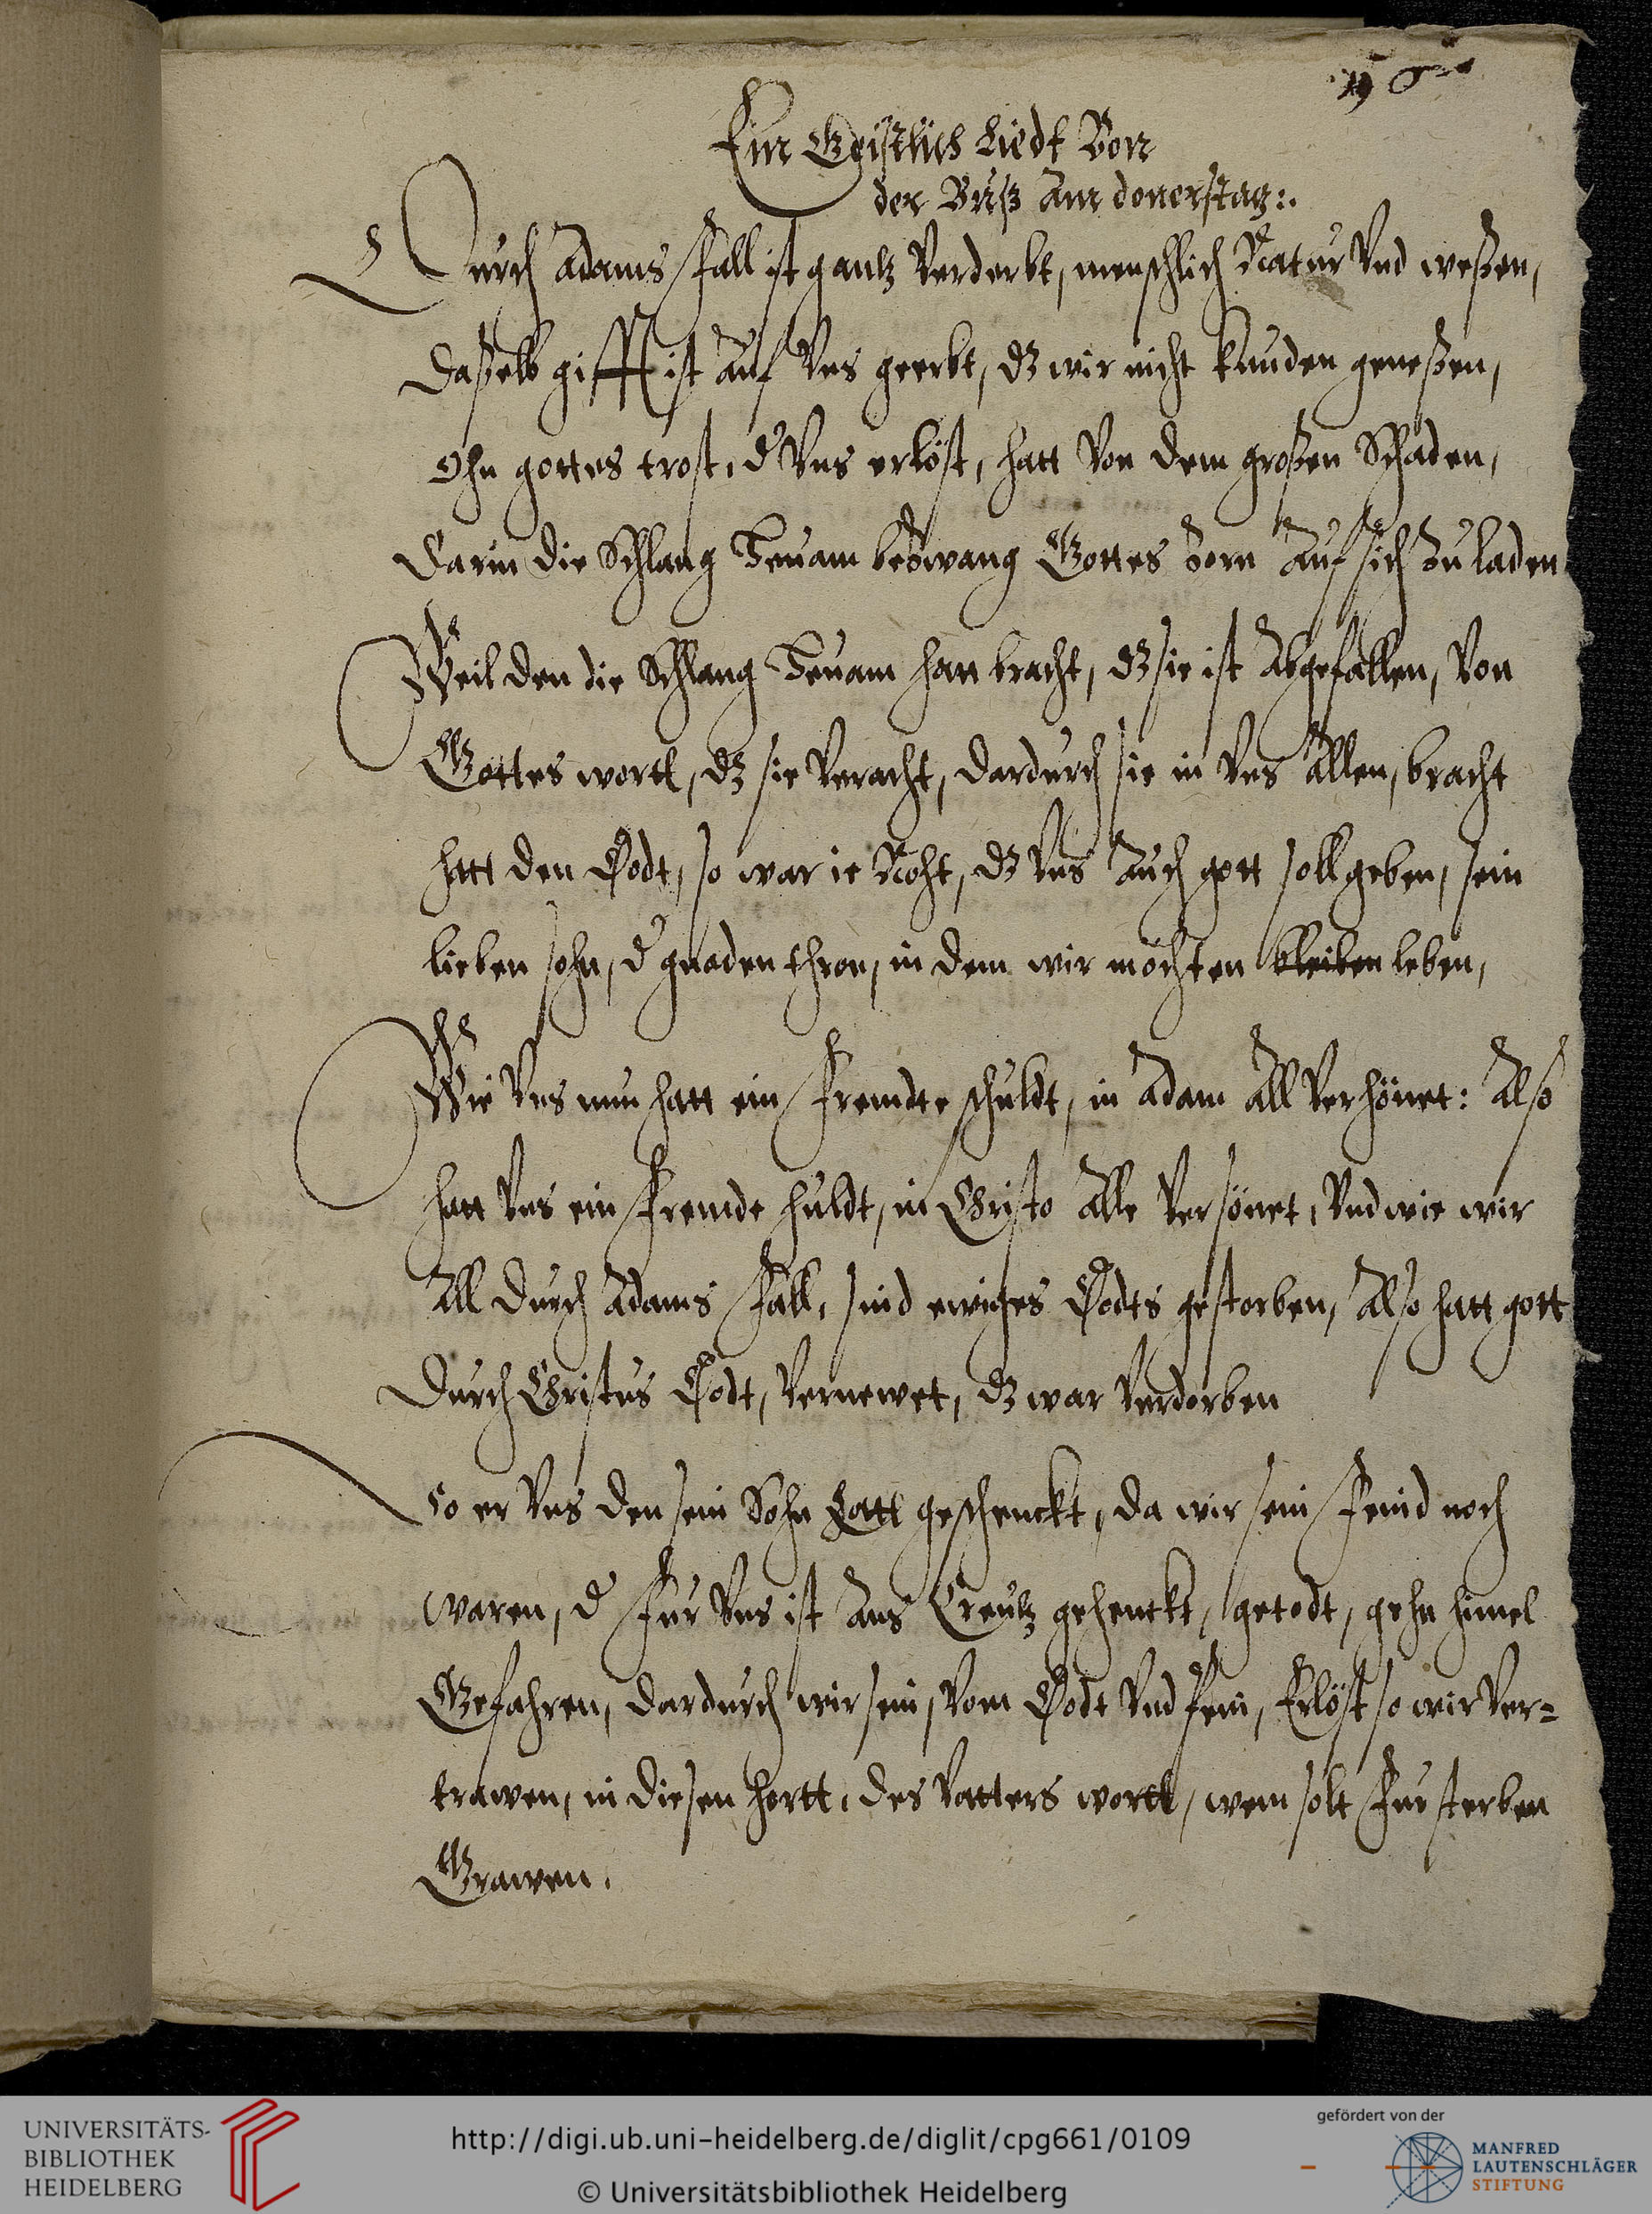 Ein Geistlich Liedt Von
der Buß Am donerstag:.
Durch Adams Fall ist gantz Verderbt, menschlich Natur Vnd weßen,
daßelb gifft ist Auf Vns geerbt, dz wir nicht kunden geneßen,
Ohn gottes trost, d Vns erlöst, hatt Von dem großen Schaden,
darin die Schlang Heuam bezwang Gottes Zorn Auf sich Zu laden
Weil den die Schlang Heuam hatt bracht, dz sie ist Abgefallen, Von
Gottes wortt, dz sie Veracht, dardurch sie in Vns Allen, bracht
hatt den Todt, so war ie Noht, dz Vns Auch gott soll geben, sein
lieben sohn, d gnaden thron, in dem wir möchten bleiben leben,
Wie Vns nun hatt ein Fremdte schuldt, in Adam All Verhönet: Also
hatt Vns ein Fremde huldt, in Christo Alle Versönet, Vnd wie wir
All durch Adams Fall, sind ewiges Todts gestorben, Also hatt gott
durch Christus Todt, Vernewet, dz war Verdorben
So er Vns den sein Sohn hatt geschenckt, da wir sein Feind noch
waren, d Fur Vns ist Ans Creutz gehenckt, getodt, gehn himel
Gefahren, dardurch wir sein, Vom Todt Vnd Pein, Erlöst so wir Ver=
trawen, in diesen hortt, des Vatters wortt, wem solt Fur sterben
Grawen.
UNIVERSITÄTS-
BIBLIOTHEK
HEIDELBERG
http://digi.ub.uni-heidelberg.de/diglit/cpg661/0109
© Universitätsbibliothek Heidelberg
gefördert von der
MANFRED
LAUTENSCHLÄGER
STIFTUNG